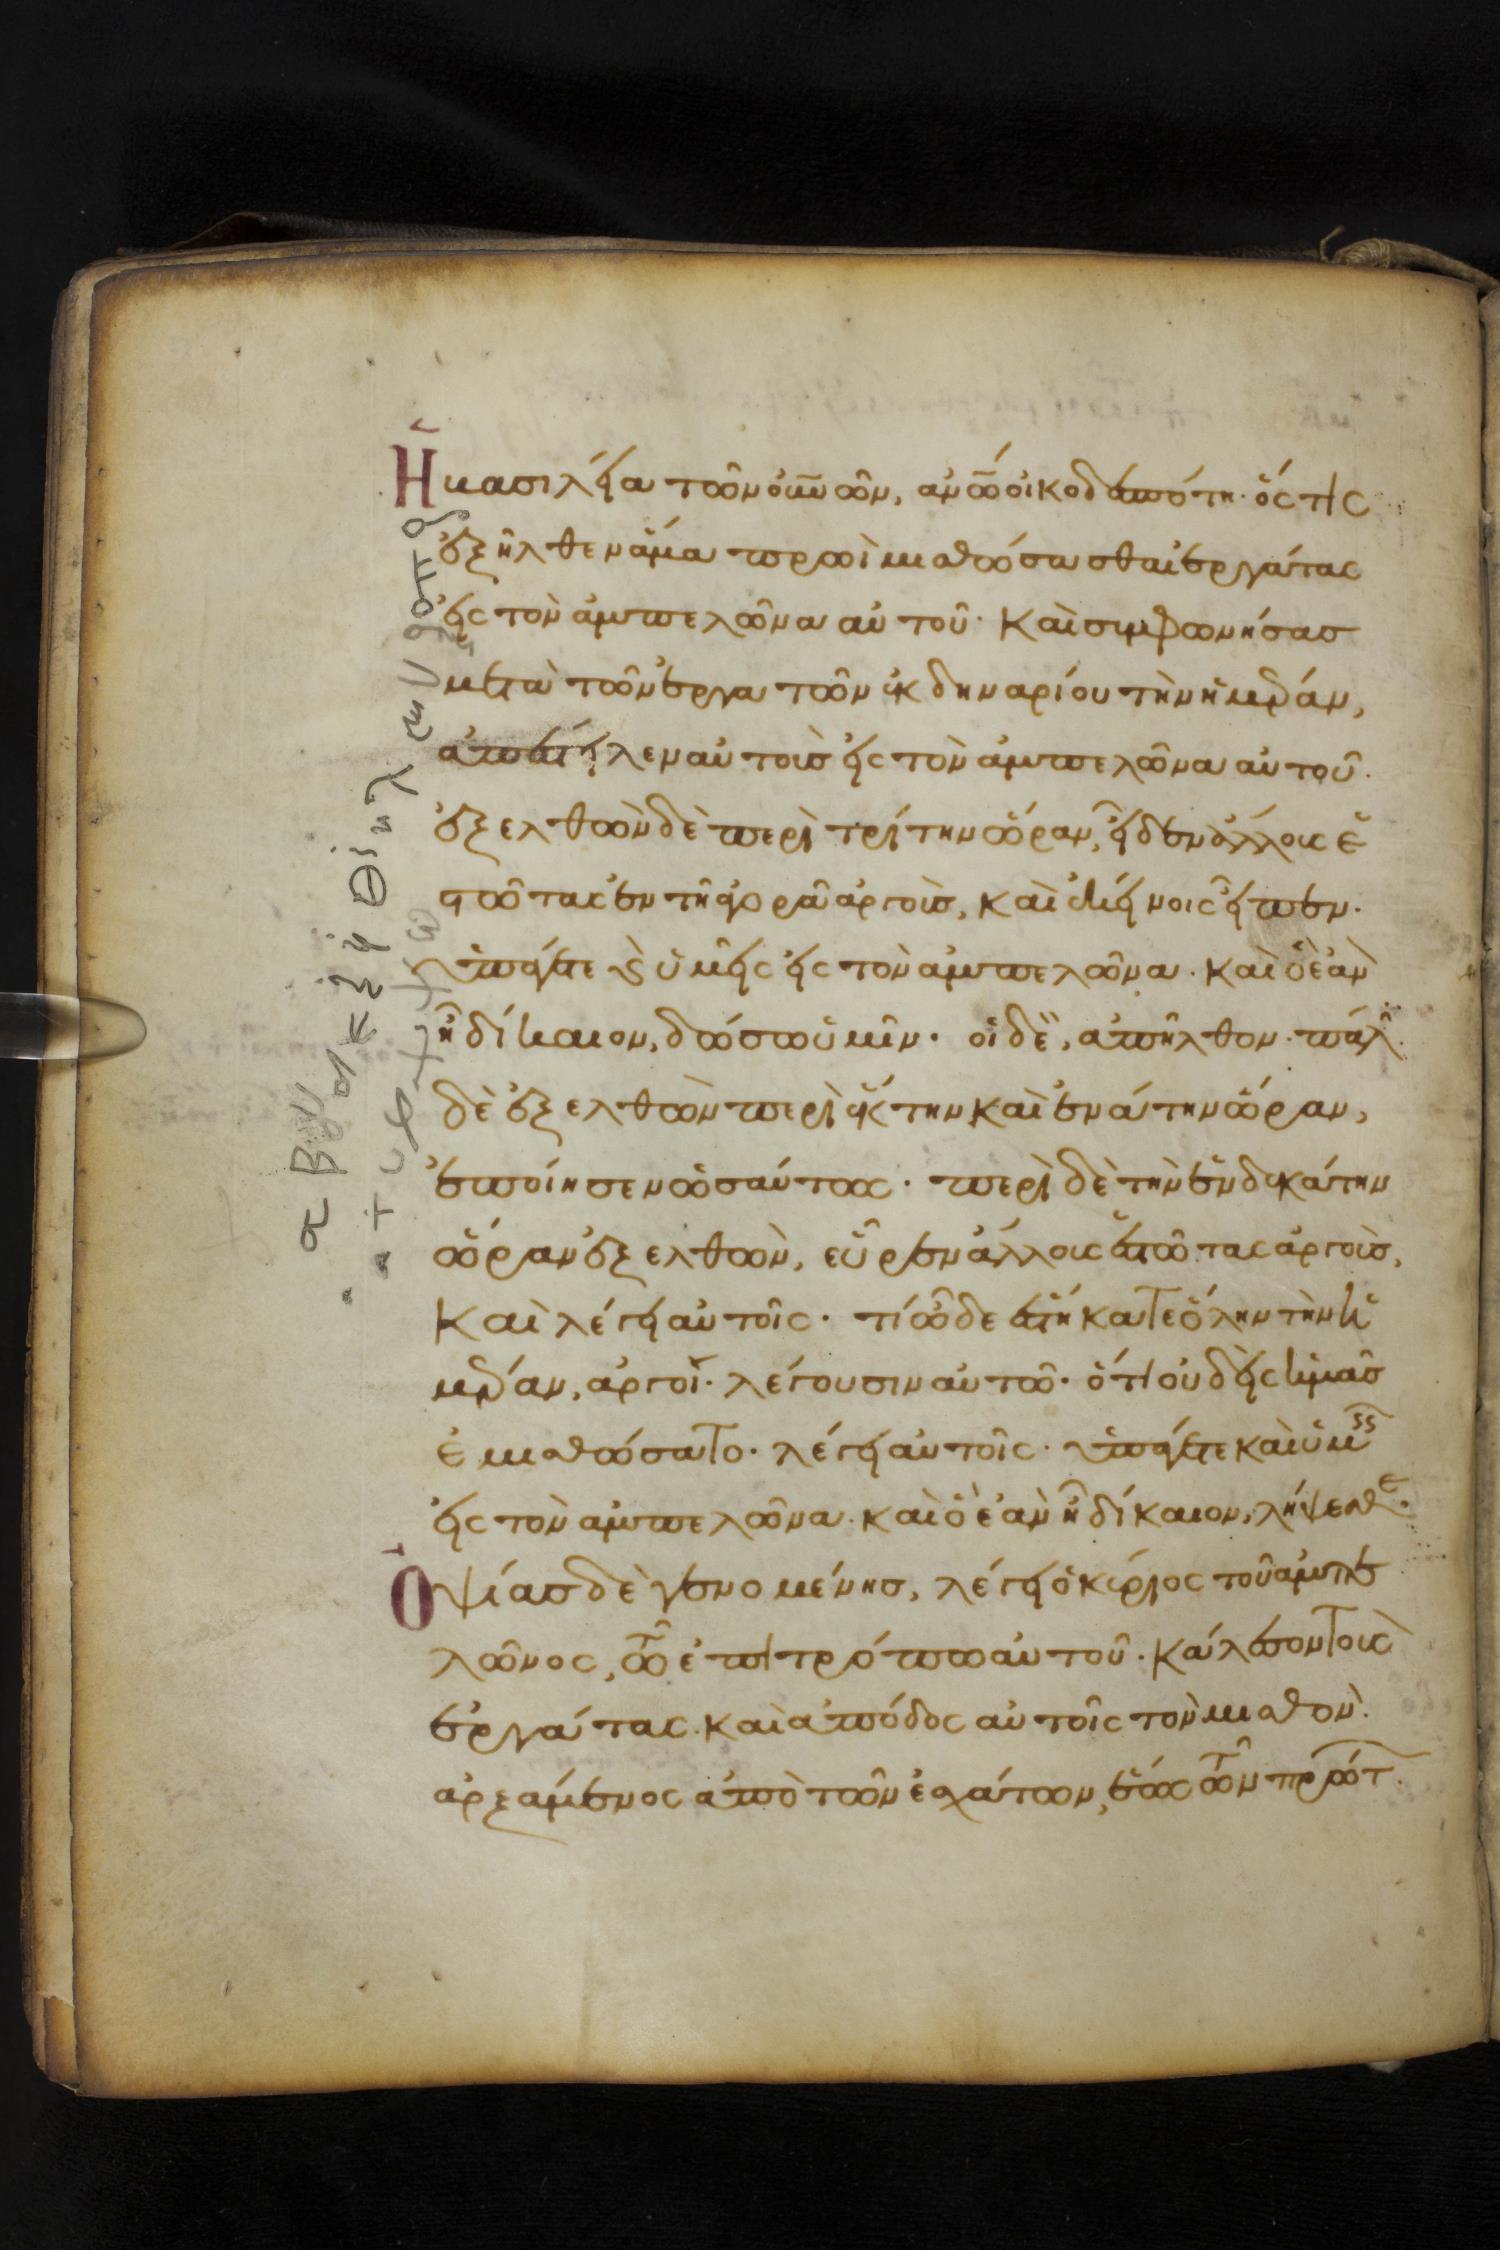 Ἡ βασιλεία τῶν οὐνῶν, ἀνῶ οἰκοδεσπότη· ὅς τις
ἐξῆλθεν ἅμα πρωῒ μισθώσασθαι ἐργάτας
εἰς τὸν ἀμπελῶνα αὐτοῦ· καὶ συμφωνήσας
μετὰ τῶν ἐργατῶν ἐκ δηναρίου τὴν ἡμέραν,
ἀπέστειλεν αὐτοὺς εἰς τὸν ἀμπελῶνα αὐτοῦ.
ἐξελθὼν δὲ περὶ τρίτην ὥραν, εἶδεν ἄλλους ἑ
στῶτας ἐν τῇ ἀγορᾷ ἀργοὺς, καὶ ἐκείνοις εἶπεν·
ὑπάγετε ϗ ὑμεῖς εἰς τὸν ἀμπελῶνα· καὶ ὃ ἐὰν
ᾖ δίκαιον, δώσω ὑμῖν· οἱ δὲ, ἀπῆλθον· πάλιν
δὲ ἐξελθὼν περὶ ἕκτην καὶ ἐνάτην ὥραν,
ἐποίησεν ὡσαύτως· περὶ δὲ τὴν ἑνδεκάτην
ὥραν ἐξελθὼν, εὗρεν ἄλλους ἑστῶτας ἀργοὺς,
καὶ λέγει αὐτοῖς· τί ὧδε ἑστήκατε ὅλην τὴν ἡ
μέραν, ἀργοί· λέγουσιν αὐτῶ· ὅτι οὐδεὶς ἡμᾶς
ἐμισθώσατο· λέγει αὐτοῖς· ὑπάγετε καὶ ὑμεῖς
εἰς τὸν ἀμπελῶνα· καὶ ὃ ἐὰν ᾖ δίκαιον, λήψεσθε·
Ὀψίας δὲ γενομένης, λέγει ὁ κύριος τοῦ ἀμπε
λῶνος, τῶ ἐπιτρόπω αὐτοῦ· κάλεσον τοὺς
ἐργάτας· καὶ ἀπόδος αὐτοῖς τὸν μισθὸν·
ἀρξάμενος ἀπὸ τῶν ἐσχάτων, ἕως τῶν πρώτ